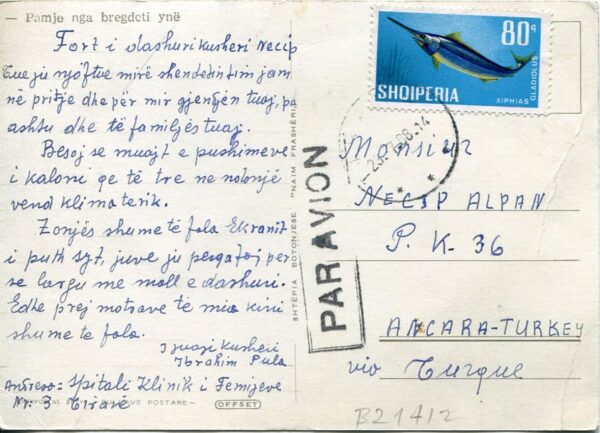 — Pamje nga bregdeti ynë
Fort i dashuri kusheri Necip
Tue ju njoftue mirë shendetin tim jam
në pritje dhe për mir gjendjen tuaj, pa
ashtu dhe të familjës tuaj.
Besoj se muajt e pushimeve
i kaloni qe të tre ne ndonjë
vend klimaterik.
Zonjës shume të fala Ekranit
i puth syt, juve ju pergafoj për
se largu me mall e dashuri.
Edhe prej motrave të mia kini
shume te fala.
Ijuaji kusheri
Ibrahim Pula
Andresa = Spitali Klinik i Femijeve
Nr. 3 Tiranë
POSTARE —
OFFSET
SHTËPIA BOTONJËSE "NAIM FRASHËRI"
PAR AVION
80 q
SHQIPERIA
XIPHIAS GLADIOLUS
Monsieur
NECIP ALPAN
P. K- 36
ANCARA-TURKEY
via Turque
B21412